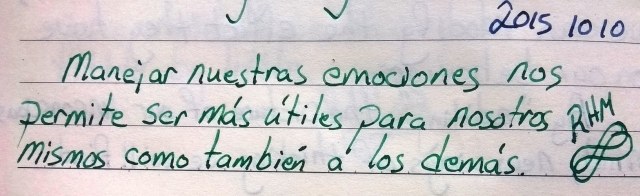 2015 10 10
Manejar nuestras emociones nos
permite ser más útiles para nosotros RHM
mismos como también á los demás.